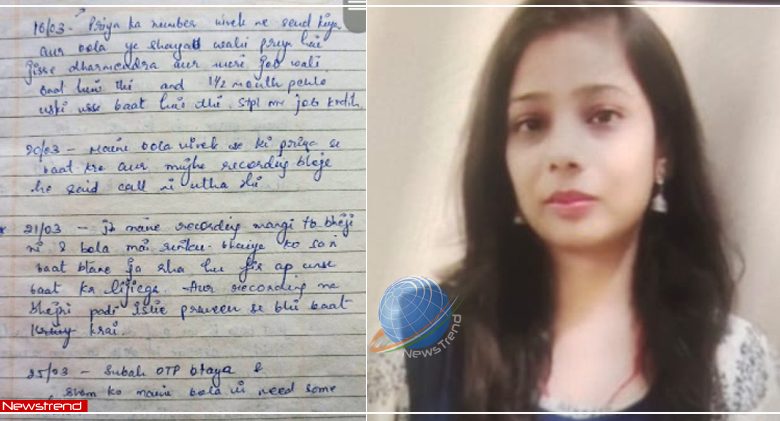 16/03 - Priya ka number vivek ne send kiya
aur bola ye shayad wahi priya hai
jisse dharmendra aur meri job wali
baat hui thi and 1½ month pehle
uski usse baat hui thi. me job
20/03 - Maine bola vivek se ki priya se
baat kro aur mujhe recording bheje
he said call ni utha rhi
21/03 - jb maine recording mangi tb bheji
ni & bola mai bhaiya ko sari
baat btane ja rha hu fir ap unse
baat kr lijiega. Aur recording na
bhejni padi isliye praveen se bhi baat
krai.
25/03 - Subah OTP btaya &
sham ko maine bola ki need some
Newstrend
NewsTrend